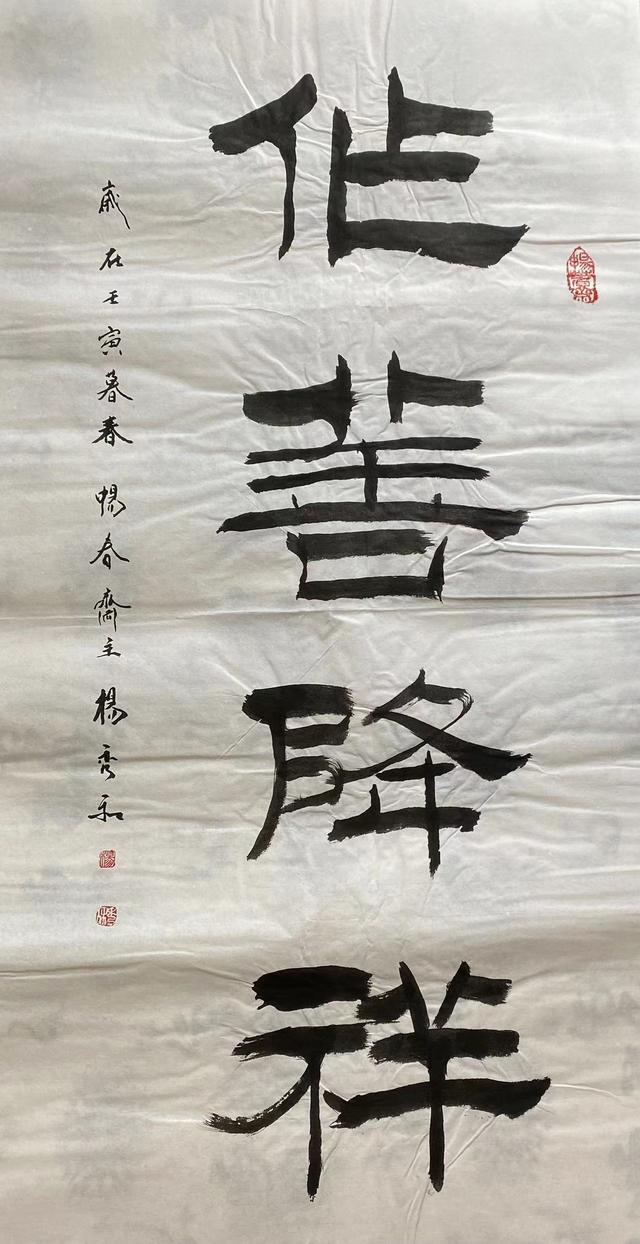 作善降祥
歲在壬寅暮春 暢春齋主 楊秀和